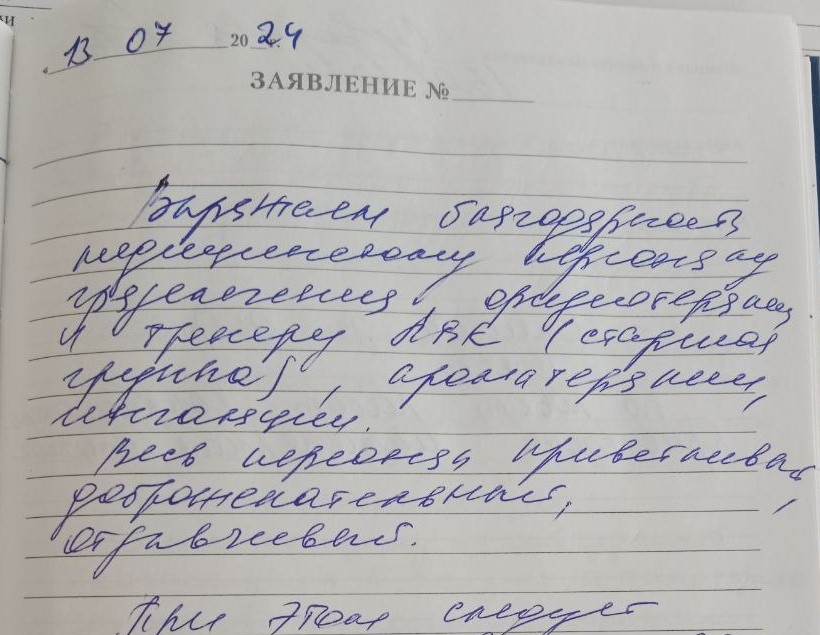 13 07 2024 г.
ЗАЯВЛЕНИЕ №
Выражаем благодарность
медицинскому персоналу
грязелечения, физиотерапии
и тренеру ЛФК (старшая
группа), ароматерапии,
ингаляции.
Весь персонал приветливый,
доброжелательный,
отзывчивый.
При этом следует